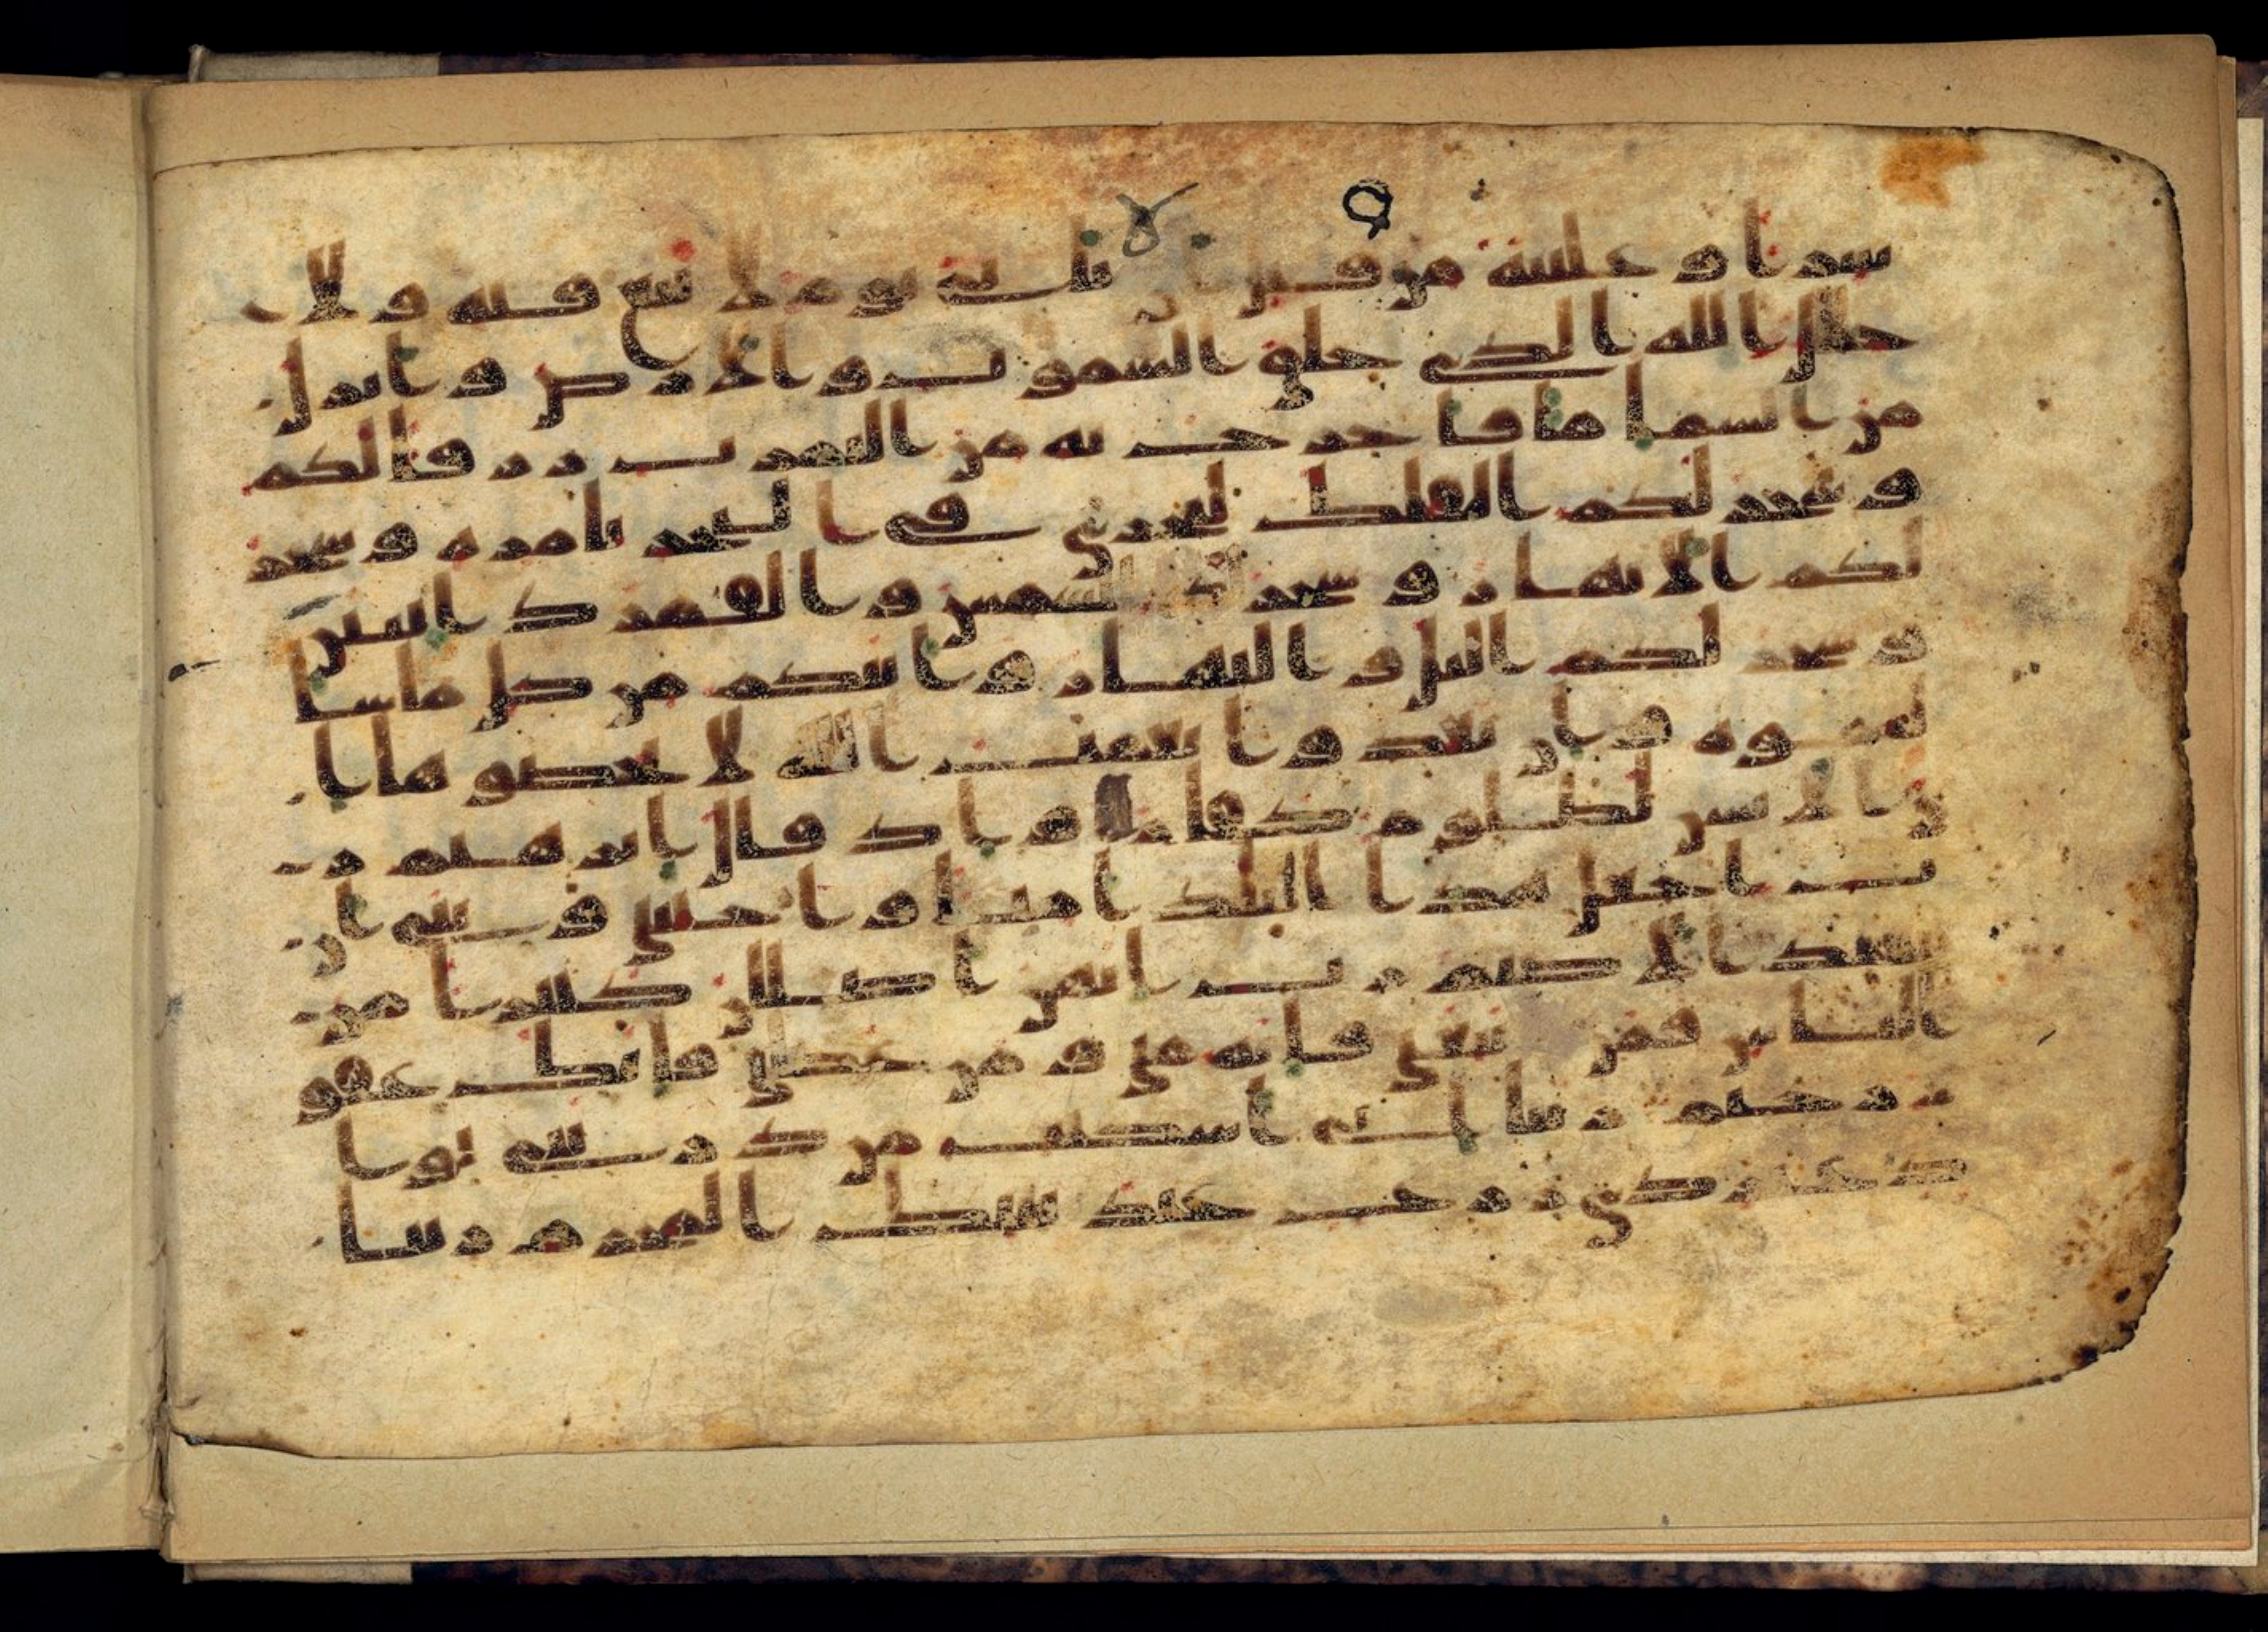 ٩
سرا وعلنية من قبل ان ياتي يوم لا بيع فيه ولا
خلل الله الذي خلق السموت والارض وانزل
من السما ما فاخرج به من الثمرت رزقا لكم
وسخر لكم الفلك لتجري في البحر بامره وسخر
لكم الانهر وسخر لكم الشمس والقمر دايبين
وسخر لكم اليل والنهار واتيكم من كل ما سا
لتموه وان تعدوا نعمت الله لا تحصوها ا
ن الانسن لظلوم كفار واذ قال ابرهيم ر
ب اجعل هذا البلد امنا واجنبني وبني ان
نعبد الاصنم رب انهن اضللن كثيرا من
الناس فمن تبعني فانه مني ومن عصني فانك غفو
ر رحيم ربنا اني اسكنت من ذريتي بوا
د غير ذي زرع عند بيتك المحرم ربنا